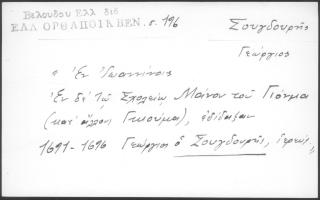 Βελούδου Ελλ διδ
ΕΛΛ ΟΡΘ ΑΠΟΙΚ ΒΕΝ. σ. 196
Σουγδουρής
Γεώργιος
" Ἐν Ἰωαννίνοις
Ἐν δὲ τῷ Σχολείῳ Μάνου τοῦ Γιόνμα
(κατ' ἄλλους Γκιούμα), ἐδίδαξαν
1691-1696 Γεώργιος ὁ Σουγδουρῆς, ἱερεύς,